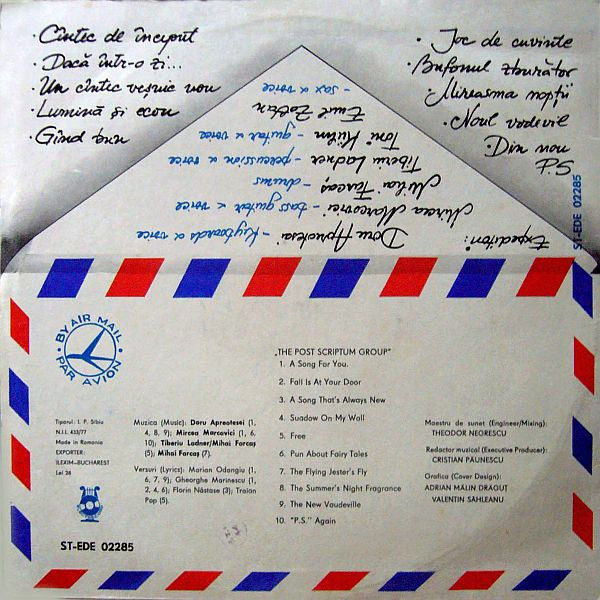 · Cîntec de început
· Dacă într-o zi...
· Un cîntec veșnic nou
· Lumină și ecou
· Gînd bun
· Joc de cuvinte
· Bufonul zburător
· Mireasma nopții
· Noul vodevil
· Din nou
P.S.
Expeditori:
Doru Apreotesei – Keyboards & voice
Mircea Marcovici – bass guitar & voice
Mihai Farcaș – drums
Tiberiu Ladner – percussion & voice
Toni Kühn – guitar & voice
Emil Zoltan
– sax & voice
ST-EDE 02285
BY AIR MAIL
PAR AVION
„THE POST SCRIPTUM GROUP"
1. A Song For You.
2. Fall Is At Your Door
3. A Song That's Always New
4. Suadow On My Wall
5. Free
6. Pun About Fairy Tales
7. The Flying Jester's Fly
8. The Summer's Night Fragrance
9. The New Vaudeville
10. "P.S." Again
Tiparul: I. P. Sibiu
N.I.I. 433/77
Made in Romania
EXPORTER:
ILEXIM—BUCHAREST
Lei 26
Muzica (Music): Doru Apreotesei (1,
4, 8, 9); Mircea Marcovici (1, 6,
10); Tiberiu Ladner/Mihai Farcaș
(5); Mihai Farcaș (7).
Versuri (Lyrics): Marian Odangiu (1,
6, 7, 9); Gheorghe Marinescu (1,
2, 4, 6); Florin Năstase (3); Traian
Pop (5).
Maestru de sunet (Engineer/Mixing):
THEODOR NEGRESCU
Redactor muzical (Executive Producer):
CRISTIAN PĂUNESCU
Grafica (Cover Design):
ADRIAN MĂLIN DRAGUȚ
VALENTIN SĂHLEANU
ST-EDE 02285